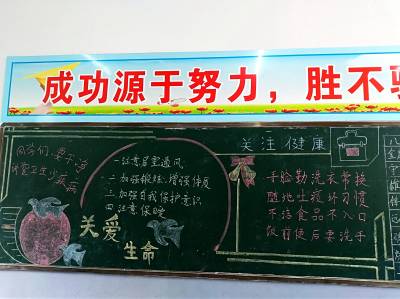 成功源于努力，胜不骄
同学们，要干净
讲卫生少疾病
关爱
生命
一注意居室通风
二加强锻炼，增强体质
三加强自我保护意识
四注意保暖
关注健康
手脸勤洗衣常换
随地吐痰坏习惯
不洁食品不入口
饭前便后要洗手